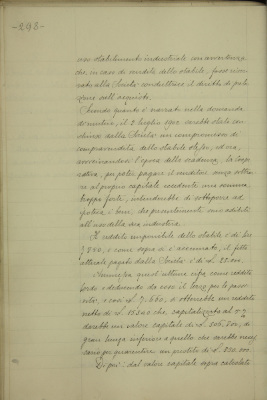 -298-
suo stabilimento industriale con avvertenza
che, in caso di vendita dello stabile, fosse riser-
vato alla Società conduttrice il diritto di pre-
lazione sull'acquisto.
Stando quanto è narrato nella domanda
di mutuo, il 2 luglio 1902 sarebbe stato con-
chiuso dalla Società un compromesso di
compravendita dello stabile stesso, ed ora,
avvicinandosi l'epoca della scadenza, la Coope-
rativa, per poter pagare il venditore senza distrar-
re al proprio capitale occorrente una somma
troppo forte, intenderebbe di sottoporre ad
ipoteca i beni
all'azienda sua industria.
Il reddito imponibile dello stabile è di lire
7.860, e come sopra si è accennato, il fitto
attuale pagato dalla Società è di L. 23.000.
Assunta quest'ultima cifra come reddito
lordo e deducendo da esso il terzo per le passi-
vità, e cioè L. 7.660, si otterrebbe un reddito
netto di L. 15.340 che, capitalizzato al 5%
darebbe un valore capitale di L. 306.800, di
gran lunga inferiore a quello che sarebbe neces-
sario per guarentire un prestito di L. 220.000.
Di più, dal valore capitale sopra calcolato